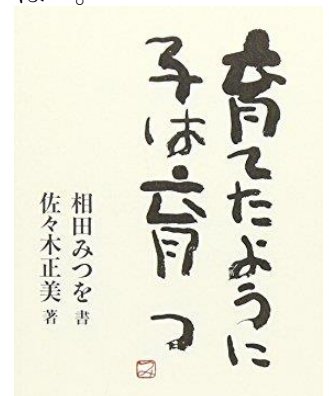 育てたように
子は育つ
相田みつを 書
佐々木正美 著